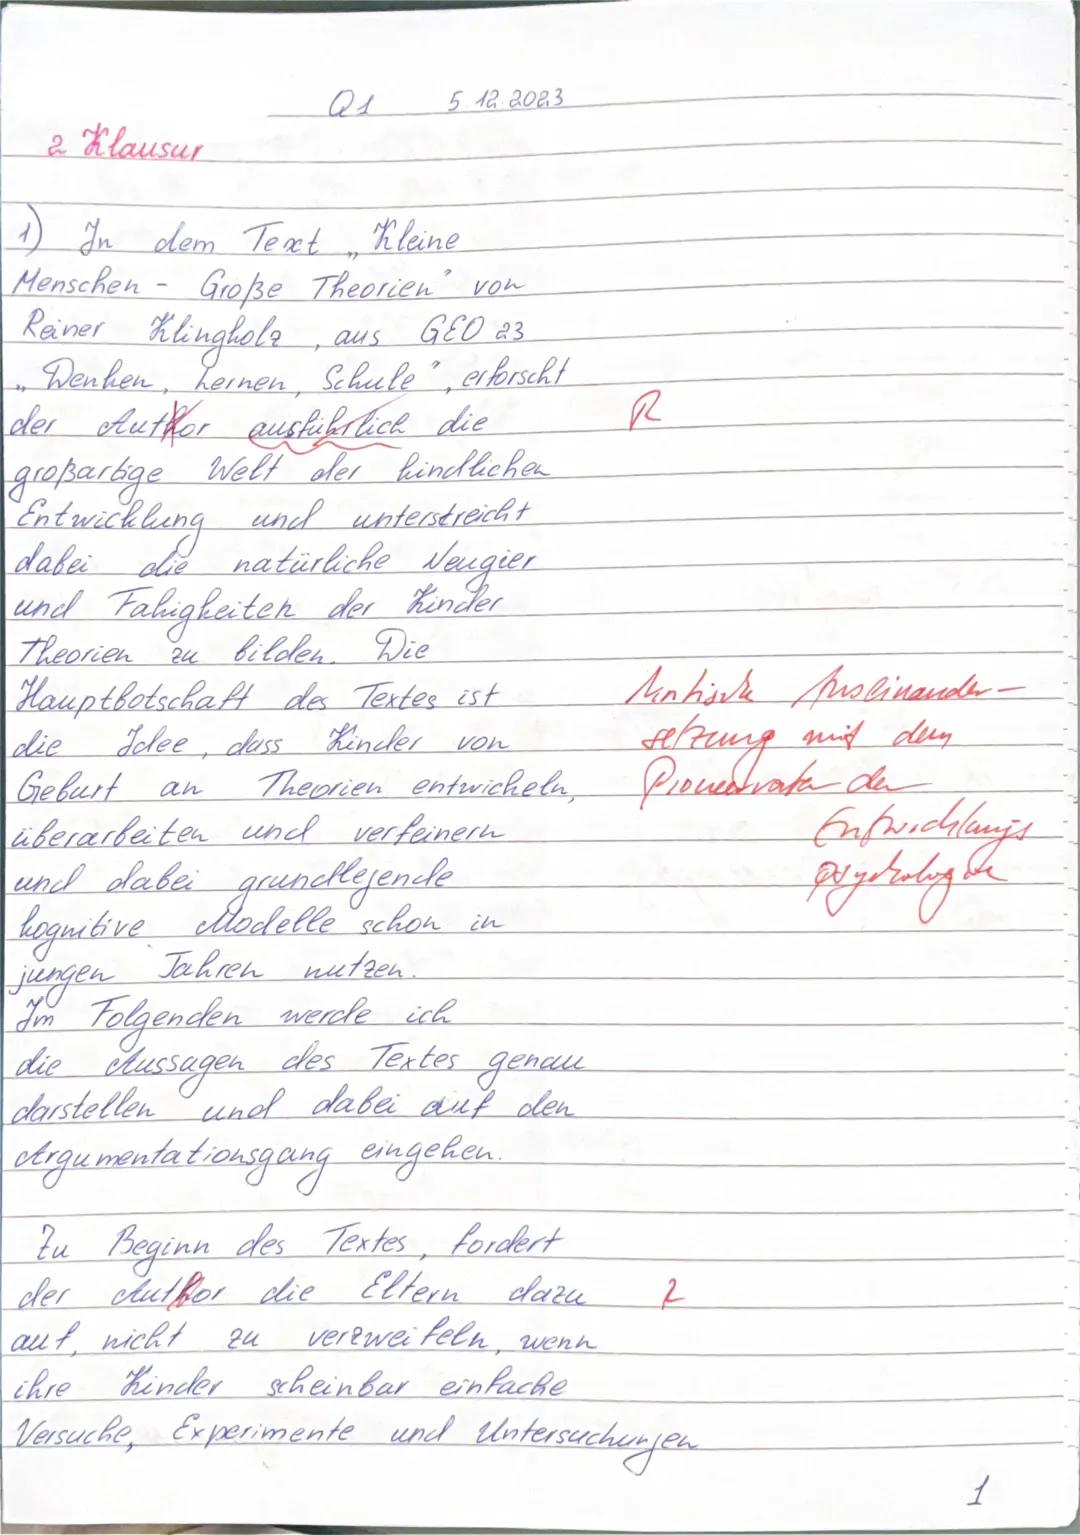 Q1 5.12.2023
2 Klausur
1) In dem Text „Kleine
Menschen - Große Theorien" von
Reiner Klingholz, aus GEO 23
„Denken, Lernen, Schule", erforscht
der Author ausführlich die R
großartige Welt der kindlichen
Entwicklung und unterstreicht
dabei die natürliche Neugier
und Fähigkeiten der Kinder
Theorien zu bilden. Die
Hauptbotschaft des Textes ist kritische Auseinander-
die Idee, dass Kinder von setzung mit dem
Geburt an Theorien entwickeln, Pioniervater der
überarbeiten und verfeinern Entwicklungs
und dabei grundlegende psychologie
kognitive Modelle schon in
jungen Jahren nutzen.
Im Folgenden werde ich
die Aussagen des Textes genau
darstellen und dabei auf den
Argumentationsgang eingehen.
Zu Beginn des Textes, fordert
der Author die Eltern dazu R
auf, nicht zu verzweifeln, wenn
ihre Kinder scheinbar einfache
Versuche, Experimente und Untersuchungen
1